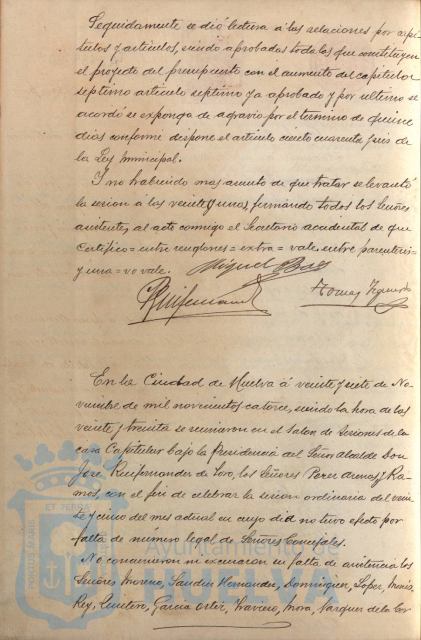 Seguidamente se dió lectura á las relaciones por capi-
tulos y articulos, siendo aprobadas todas las que constituyen
el proyecto del presupuesto con el aumento del capitulo
septimo articulo septimo ya aprobado y por ultimo se
acordó se exponga de agravio por el termino de quince
dias conforme dispone el articulo ciento cuarenta y seis de
la Ley Municipal.
Y no habiendo mas asunto de que tratar se levantó
la sesion á las veinte (y una), firmando todos los Señores
asistentes, al acto conmigo el Secretario accidental de que
certifico = entre renglones = extra = vale, entre parentesis =
y una = no vale.
Miguel
Tomas
En la Ciudad de Huelva á veinte y siete de No-
viembre de mil novecientos catorce, siendo la hora de las
veinte y treinta se reunieron en el Salon de Sesiones de la
casa Capitular bajo la Presidencia del Señor Alcalde Don
José Ruifernandez de Toro, los Señores Perez Arenas y Ra-
mos, con el fin de celebrar la sesion ordinaria del vein-
te y cinco del mes actual en cuyo dia no tuvo efecto por
falta de numero legal de Señores Concejales.
No concurrieron ni excusaron su falta de asistencia los
Señores Moreno, Sanchez Hernandez, Dominguez, Lopez, Mesia
Rey, Quintero, Garcia Ortiz, Navarro, Mora, Vazquez de la Cor-
ET PETRA
PORTUS MARIS
Ayuntamiento de
HUELVA